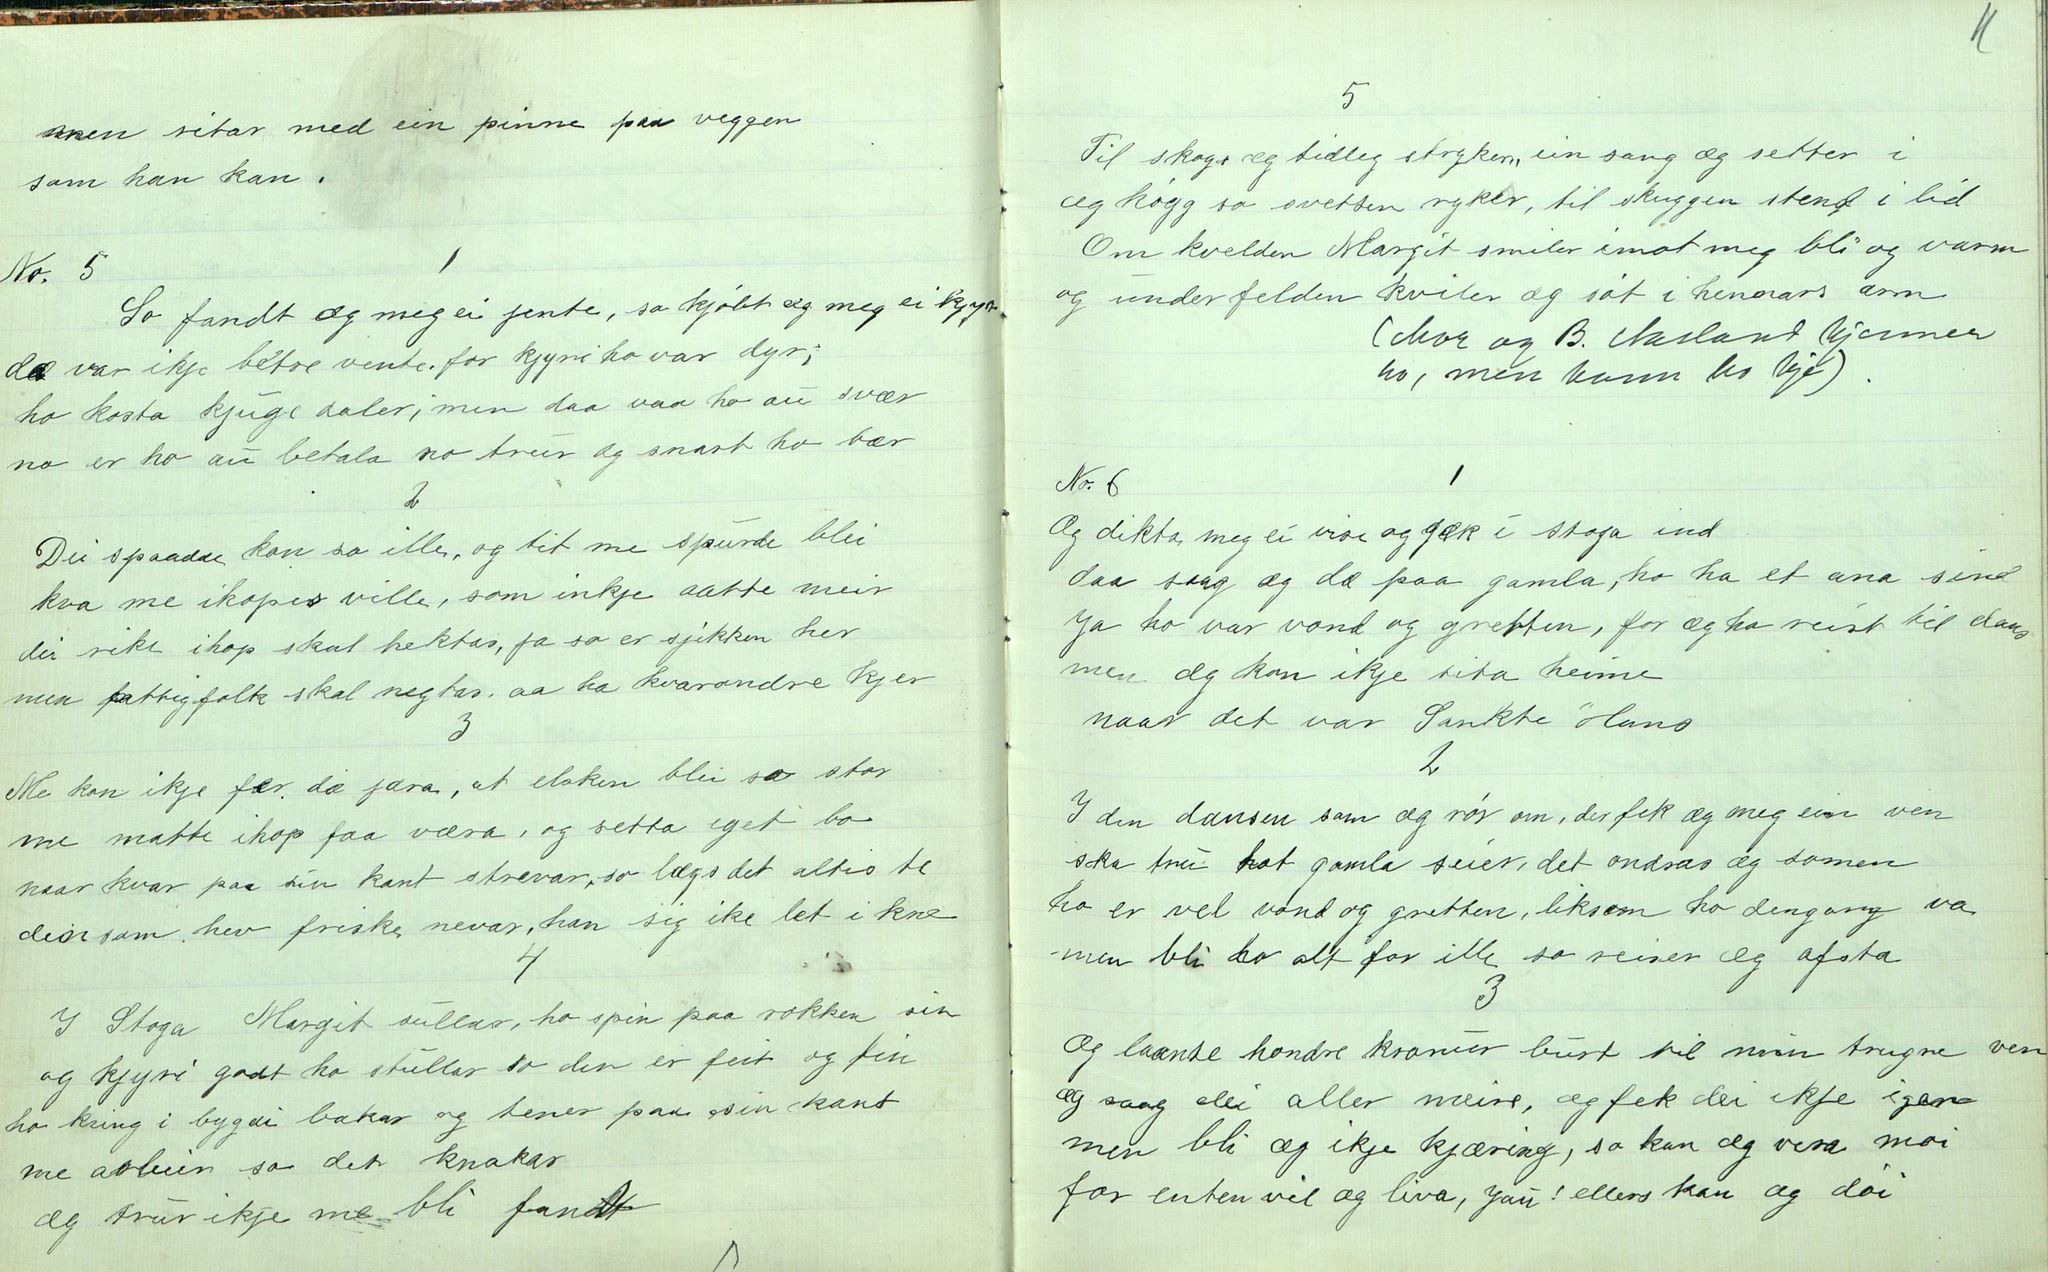 men sitar med ein pinne paa veggen
som han kan.
No. 5
1
So fandt æg meg ei jente, so kjöbt æg meg ei kjyr
dæ var ikje betre vente, for kjyri ho var dyr;
ho kosta kjuge daler; men daa vaa ho au svær
no er ho au betala no trur æg snart ho bær
2
Dei spaadde kan so ille, og tit me spurde blei
kva me ihopes ville, som inkje aatte meir
dei rike ihop skal hektas, ja so er sjikken her
men fattigfolk skal negtas. aa ha kvarandre kjer
3
Me kan ikje fær dæ jæra, at elsken blei so stor
me matte ihop faa væra, og setta eget bo
naar kvar paa sin kant strevar, so lægs det altid te
dein som hev friske nevar, han sig ike let i kne
4
I Stoga Margit sullar, ho spin paa rokken sin
og kjyri godt ho stullar so den er feit og fin
ho kring i bygdi bakar og tener paa sin kant
me arbeier so det knakar
æg trur ikje me bli fandt
11
5
Til skogs æg tidleg stryken, ein sang æg setter i
æg högg so svetten ryker, til skuggen stend i lid
Om kvelden Margit smiler imot meg bli og varm
og under felden kviler æg söt i hennars arm
(Mor og B. Aasland kjenner
ho, men kunn ho kje).
No. 6
1
Æg dikta meg ei vise og gæk i stoga ind
daa saag æg dæ paa gamla, ho ha et ana sind
Ja ho var vond og gretten, for æg ha reist til dans
men æg kan ikje sita heime
naar det var Sankte Hans
2
I den dansen som æg rör om, der fek æg meg ein ven
ska tru hot gamla seier, det ondsas æg somen
ho er vel vond og gretten, liksom ho dengang va
men bli ho alt for ille so reiser æg afsta
3
Æg laante hondre kronur burt til min trugne ven
æg saag dei aller meire, æg fek dei ikje igen
men bli æg ikje kjæring, so kan æg vera moi
for enten vil æg liva, jau! ellers kan æg döi